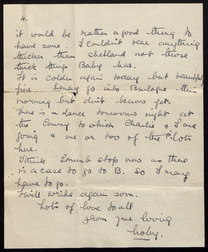 4.
it would be rather a good thing to
have some. I couldn't wear anything
thicker than shetland not those
thick things Baby has.
It is colder again today but beautiful
fine. I may go into Boulogne this
morning but don't know yet.
There is a dance tomorrow night at
the Convoy to which Charlie & I are
going & one or two of the Pilots
here.
I think I must stop now as there
is a case to go to B. so I may
have to go.
I will write again soon.
Lots of love to all
from your loving